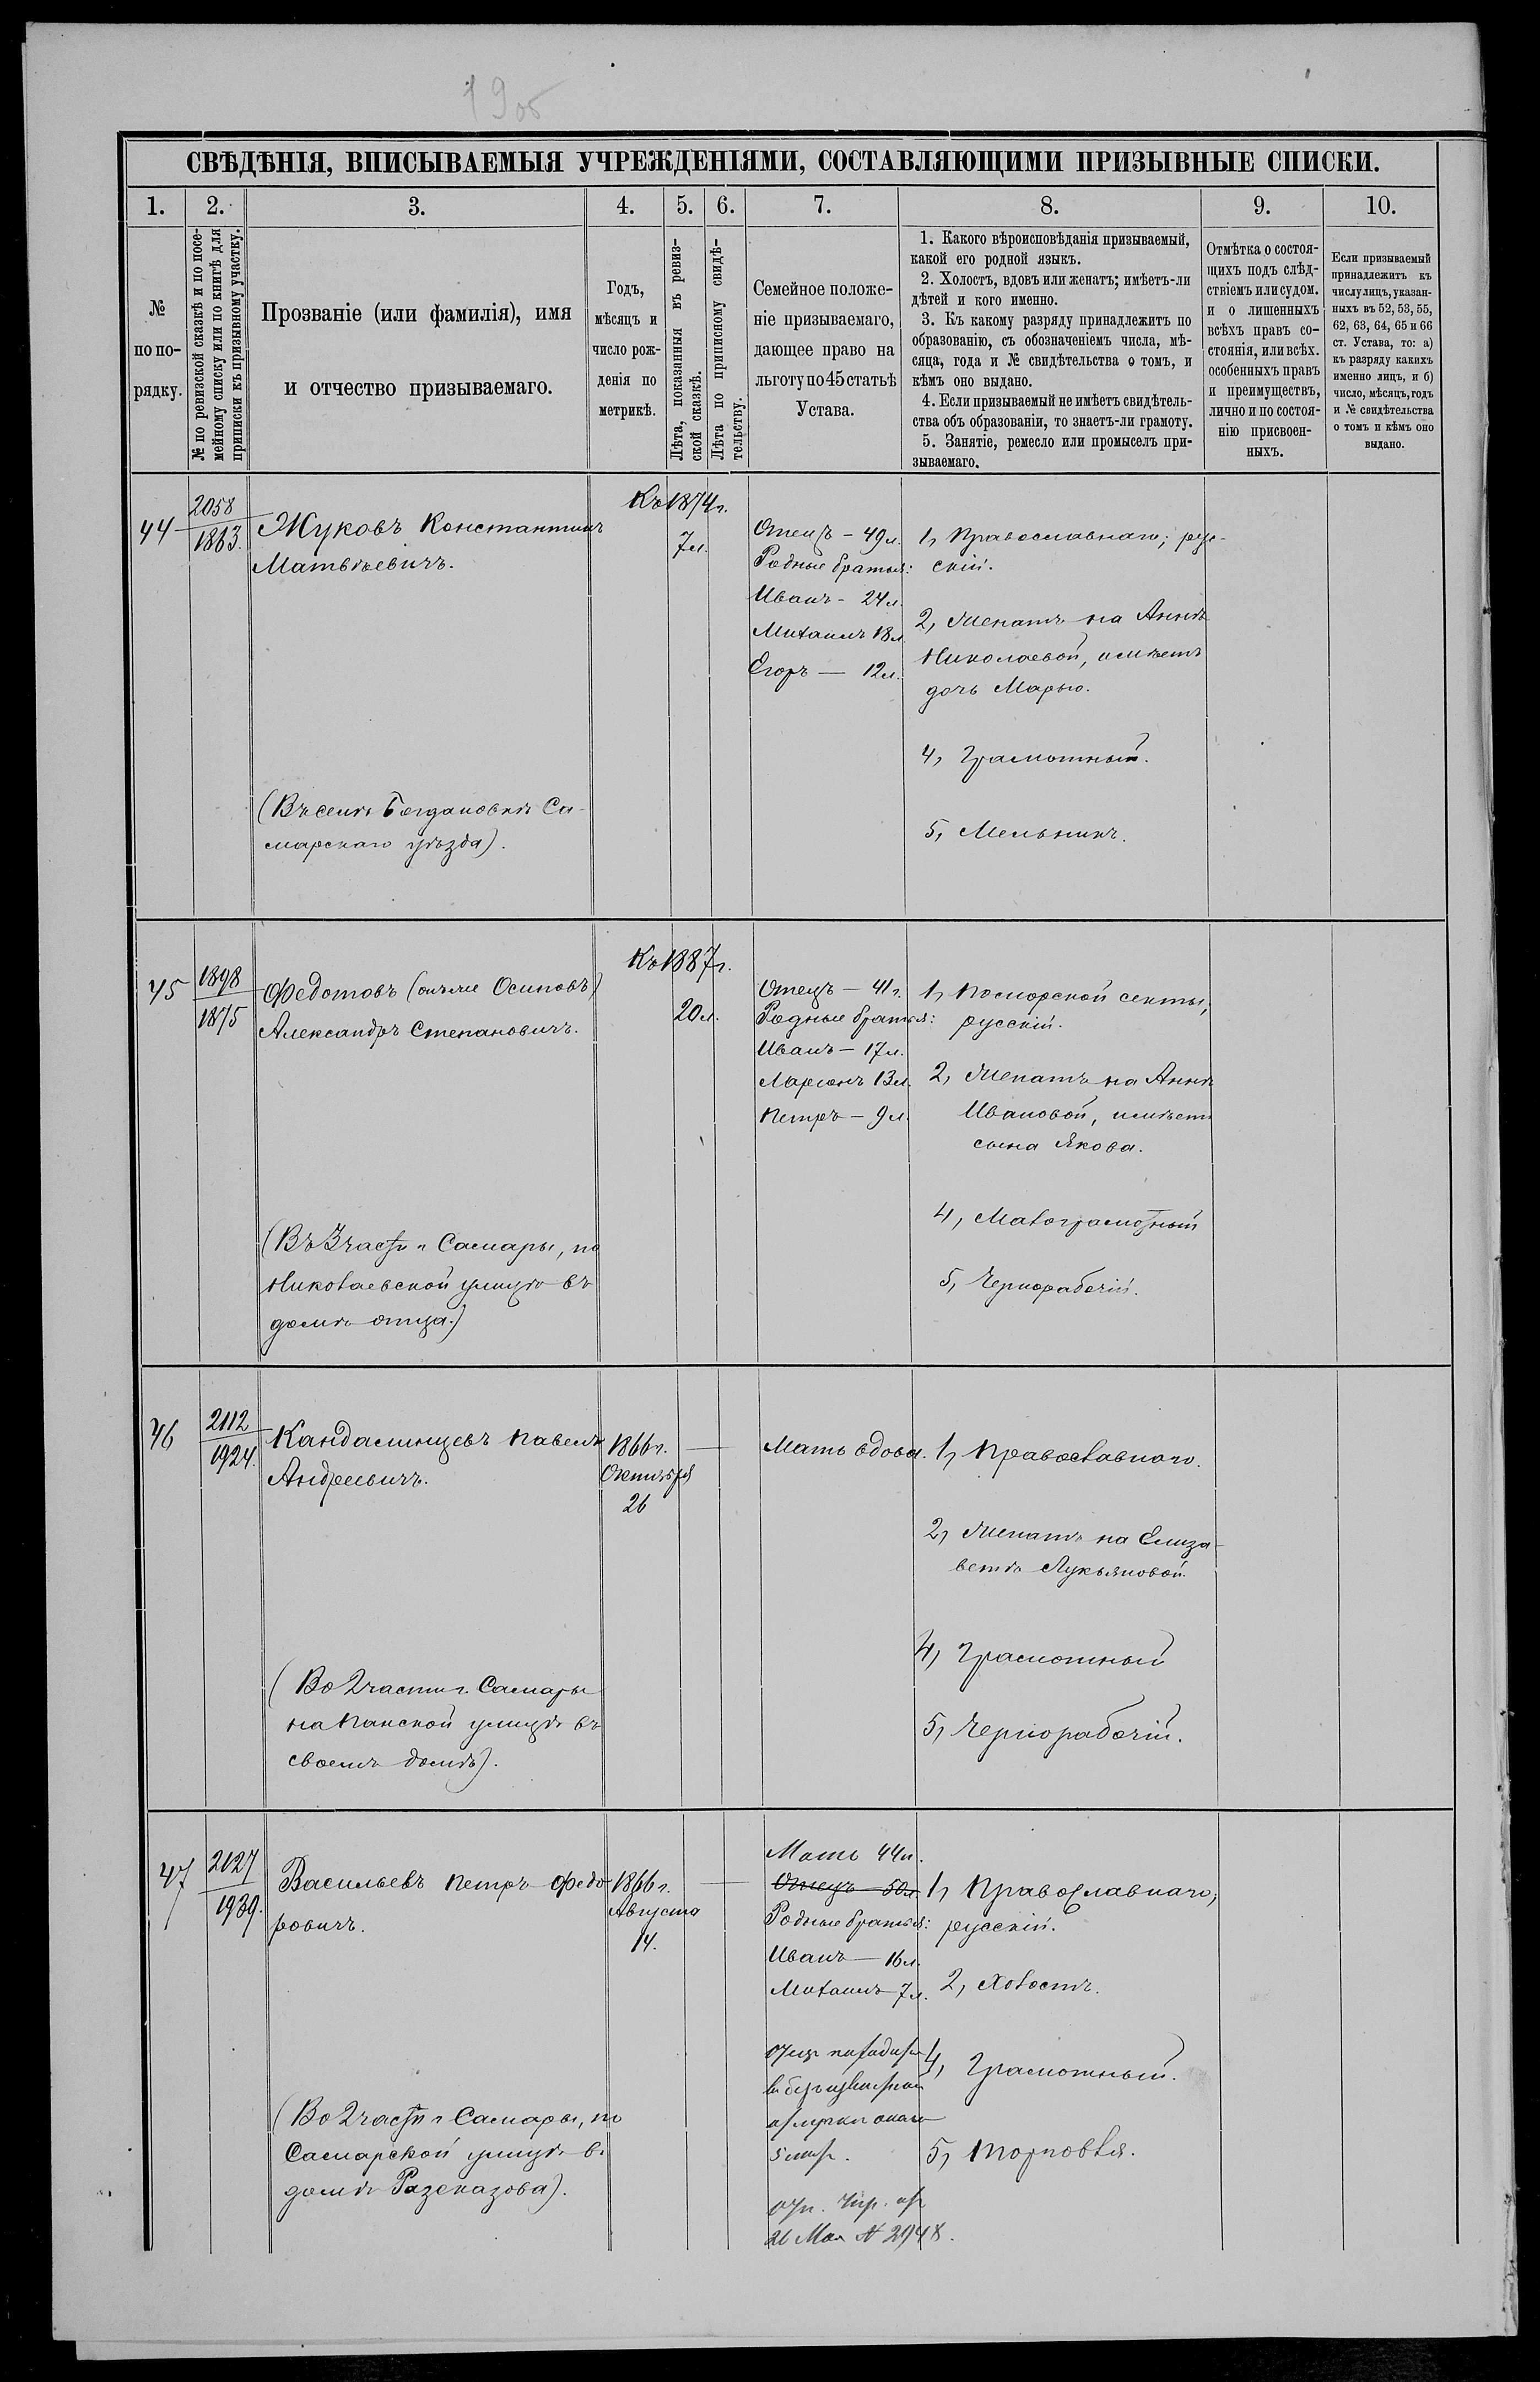 1905
СВѢДѢНІЯ, ВПИСЫВАЕМЫЯ УЧРЕЖДЕНІЯМИ, СОСТАВЛЯЮЩИМИ ПРИЗЫВНЫЕ СПИСКИ.
1. 2. 3. 4. 5. 6. 7. 8. 9. 10.
№
по по-
рядку.
№ по ревизской сказкѣ и по посе-
мейному списку или по книгѣ для
приписки къ призывному участку.
Прозваніе (или фамилія), имя
и отчество призываемаго.
Годъ,
мѣсяцъ и
число рож-
денія по
метрикѣ.
Лѣта, показанныя въ ревиз-
ской сказкѣ.
Лѣта по приписному свидѣ-
тельству.
Семейное положе-
ніе призываемаго,
дающее право на
льготу по 45 статьѣ
Устава.
1. Какого вѣроисповѣданія призываемый,
какой его родной языкъ.
2. Холостъ, вдовъ или женатъ; имѣетъ-ли
дѣтей и кого именно.
3. Къ какому разряду принадлежитъ по
образованію, съ обозначеніемъ числа, мѣ-
сяца, года и № свидѣтельства о томъ, и
кѣмъ оно выдано.
4. Если призываемый не имѣетъ свидѣтель-
ства объ образованіи, то знаетъ-ли грамоту.
5. Занятіе, ремесло или промыселъ при-
зываемаго.
Отмѣтка о состоя-
щихъ подъ слѣд-
ствіемъ или судом.
и о лишенныхъ
всѣхъ правъ со-
стоянія, или всѣх.
особенныхъ правъ
и преимуществъ,
лично и по состоя-
нію присвоен-
ныхъ.
Если призываемый
принадлежитъ къ
числу лицъ, указан-
ныхъ въ 52, 53, 55,
62, 63, 64, 65 и 66
ст. Устава, то: а)
къ разряду какихъ
именно лицъ, и б)
число, мѣсяцъ, годъ
и № свидѣтельства
о томъ и кѣмъ оно
выдано.
44
2058
1863.
Жуковъ Константинъ
Матвѣевичъ.
(Въ селѣ Богдановкѣ Са-
марскаго уѣзда).
Къ 1874 г.
7 л.
Отецъ - 49 л.
Родные братья:
Иванъ - 24 л.
Михаилъ 18 л.
Егоръ — 12 л.
1, Православнаго; рус-
скій.
2, Женатъ на Аннѣ
Николаевой, имѣетъ
дочь Марью.
4, Грамотный.
5, Мельникъ.
45
1898
1875
Федотовъ (онъ же Осиповъ)
Александръ Степановичъ.
(Въ 3 части г. Самары, по
Николаевской улицѣ въ
домѣ отца.)
Къ 1887 г.
20 л.
Отецъ - 41 г.
Родные братья:
Иванъ - 17 л.
Ларіонъ 13 л.
Петръ - 9 л.
1, Поморской секты,
русскій.
2, Женатъ на Аннѣ
Ивановой, имѣетъ
сына Якова.
4, Малограмотный
5, Чернорабочій.
46
2112
1924.
Кандалинцевъ Павелъ
Андреевичъ.
(Во 2 части г. Самары
на Панской улицѣ въ
своемъ домѣ).
1866 г.
Октября
26
Мать вдова.
1, Православнаго.
2, Женатъ на Елиза-
ветѣ Лукьяновой.
4, Грамотный
5, Чернорабочій.
47
2127
1939.
Васильевъ Петръ Федо-
ровичъ.
(Во 2 части г. Самары, по
Самарской улицѣ въ
домѣ Разсказова).
1866 г.
Августа
14.
Мать 44 л.
Отецъ - 50 л.
Родные братья:
Иванъ — 16 л.
Михаилъ - 7 л.
отецъ находится
въ безъизвѣстной
отлучкѣ около
5 лѣтъ.
отн. Упр. отъ
26 Мая № 2948.
1, Православнаго;
русскій.
2, Холостъ.
4, Грамотный.
5, Торговля.